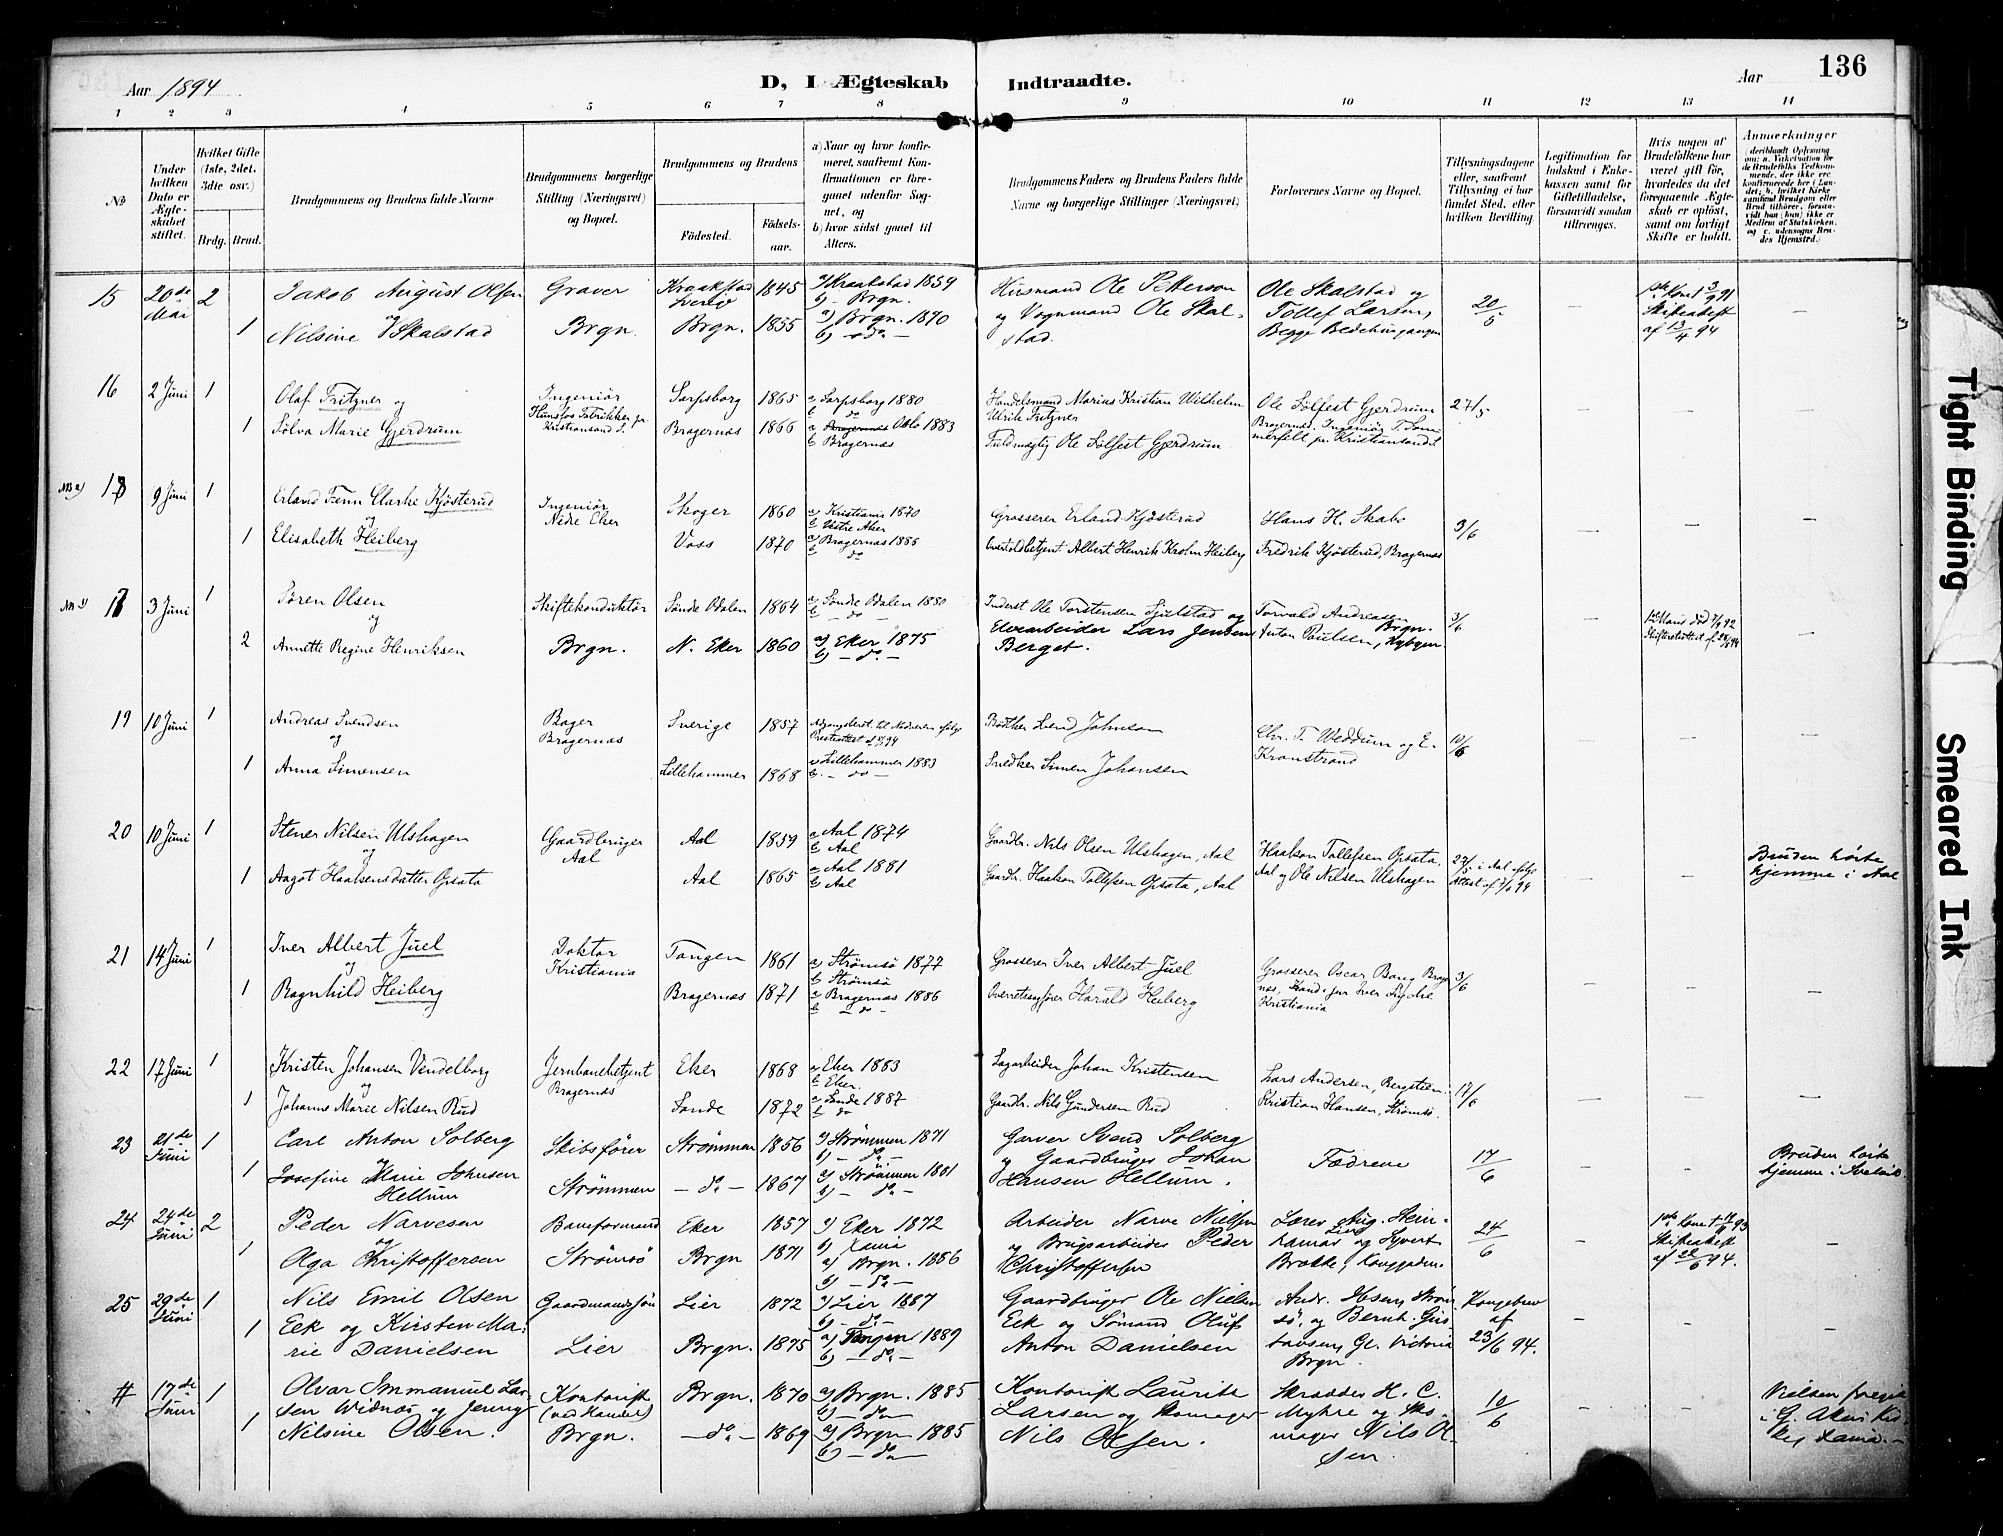 136
Aar 1894
D, I Ægteskab Indtraadte.
Aar
1 2 3 4 5 6 7 8 9 10 11 12 13 14
No
Under hvilken Dato er Ægteskabet stiftet.
Hvilket Gifte (1ste, 2det, 3die osv.)
Brdg. Brud.
Brudgommens og Brudens fulde Navne
Brudgommens borgerlige Stilling (Næringsvei) og Bopæl.
Brudgommens og Brudens
Fødested. Fødselsaar.
a) Naar og hvor konfirmeret, saafremt Konfirmationen er foregaaet udenfor Sognet, og
b) hvor sidst gaaet til Alters.
Brudgommens Faders og Brudens Faders fulde Navne og borgerlige Stillinger (Næringsvei)
Forlovernes Navne og Bopæl.
Tillysningsdagene eller, saafremt Tillysning ei har fundet Sted, efter hvilken Bevilling.
Legitimation for Indskud i Enkekassen samt for Giftetilladelse, forsaavidt saadan tiltrænges.
Hvis nogen af Brudefolkene har været gift før, hvorledes da det foregaaende Ægteskab er opløst, samt om lovligt Skifte er holdt.
Anmærkninger
15 20de Mai 2 Jakob August Olsen Graver Kraakstad Sverig 1845 a) Kraakstad 1859 b) Brgn. Husmand Ole Petterson Ole Skalstad og 20/5 – 1ste Kone † 3/9 91 Skifteattest af 13/4 94 –
og 1 Nilsine Skalstad Brgn. Brgn. 1855 a) Brgn. 1870 b) – do – og Vognmand Ole Skalstad. Tollef Larsen, Begge Bedehusgangen
16 2 Juni 1 Olaf Fritzner og Ingeniør Hunsfos Fabrikker pr. Kristiansand S. Sarpsborg 1865 a Sarpsborg 1880 b do Handelsmand Marius Kristian Wilhelm Ulrik Fritzner Ole Sølfest Gjerdrum 27/5 – – –
1 Sølva Marie Gjerdrum Bragernæs 1866 a Bragernæs Oslo 1883 b Bragernæs Fuldmægtig Ole Sølfest Gjerdrum Bragernæs, Ingeniør T. Sommerfelt pr. Kristiansand S
NB a) 18 9 Juni 1 Erland Fenn Clarke Kjøsterud Ingeniør Nedre Eker Skoger 1860 a Kristiania 1870 b Vestre Aker Grosserer Erland Kjøsterud Hans H. Skabo 3/6 – – –
og 1 Elisabeth Heiberg Voss 1870 a) Bragernæs 1886 b do Overtoldbetjent Albert Henrik Krohn Heiberg Fredrik Kjøsterud, Bragernæs
17 3 Juni 1 Søren Olsen Skiftekonduktør Søndre Odalen 1864 a) Søndre Odalen 1880 b – do – Inderst Ole Torstensen Sjulstad og Torvald Andreasen Brgn. 3/6 –
og 2 Annette Regine Henriksen Brgn. N. Eker 1860 a) Eker 1875 b) – do – Elvearbeider Lars Jensen Berget. Anton Paulsen, Nybyen
19 10 Juni 1 Andreas Svendsen Bager Bragernæs Sverige 1857 Bødtker Svend Johnson Chr. F. Weddum og E. Kronstrand 10/6 – – –
og 1 Anna Simensen Lillehammer 1868 a Lillehammer 1883 b – do – Snedker Simen Johansen
20 10 Juni 1 Stener Nilsen Ulshagen Gaardbruger Aal Aal 1859 a Aal 1874 b Aal Gaardbr. Nils Olsen Ulshagen, Aal Haakon Tollefsen Opsata, 27/5 i Aal ifølge Attest af 7/6 94 – – Bruden hørte hjemme i Aal
og 1 Aagot Haakensdatter Opsata Aal 1865 a Aal 1881 b Aal Gaardbr. Haakon Tollefsen Opsata, Aal Aal og Ole Nilsen Ulshagen
21 14 Juni 1 Iver Albert Juel Doktor Kristiania Tangen 1861 a Strømsø 1877 b Strømsø Grosserer Iver Albert Juel Grosserer Oscar Bang Bragernæs, Kand. jur Iver Lyche Kristiania 3/6 – – –
og 1 Ragnhild Heiberg Bragernæs 1871 a Bragernæs 1886 b – do – Overretssagfører Harald Heiberg
22 17 Juni 1 Kristen Johansen Vendelborg Jernbanebetjent Bragernæs Eker 1868 a Eker 1883 b Eker. Sagarbeider Johan Kristensen Lars Andersen, Bergstien. 17/6 – – –
og 1 Johanne Marie Nilsen Rud Sande 1872 a Sande 1887 b do Gaardbr. Nils Gundersen Rud Kristian Hansen, Strømsø.
23 21de Juni 1 Carl Anton Solberg Skibsfører Strømmen 1856 a) Strømmen 1871 b) – do – Garver Svend Solberg Fædrene 17/6 – – Bruden hørte hjemme i Svelvik.
og 1 Josefine Marie Johnsen Hellum Strømmen – do – 1867 a) Strømmen 1881 b) – do – og Gaardbruger Johan Hansen Hellum.
24 24de Juni 2 Peder Narvesen Baneformand Eker 1857 a) Eker 1872 b) Xania Arbeider Narve Nielsen Lærer Aug. Hein- 24/6 – 1ste Kone † Skifteattest af –
og 1 Olga Christoffersen Strømsø Brgn 1871 a) Brgn. 1886 b) – do – og Brugsarbeider Peder Christoffersen Lier og Syvert Brakke, Konggaden
25 29de Juni 1 Nils Emil Olsen Gaardmandssøn Lier 1872 a) Lier 1887 b) – do – Gaardbruger Ole Nielsen Andr. Ibsen, Strømsø, og Bernh. Gustavsen, Gl. Victoria Brgn. Kongebrev af 23/6 94. – – –
1 Eek og Kirsten Marie Danielsen Lier Brgn. 1875 a) Tangen 1889 b) – do – Eek og Sømand Oluf Anton Danielsen
# 17de Juni 1 Olvar Immanuel Larsen Widnæs og Jenny Kontorist (ved Handel) Brgn. Brgn. 1870 a) Brgn. 1885 b) – do – Kontorist Laurits Larsen og Skomager Skrædder H. C. Myhre og Skomager Nils Olsen 10/6 – –
1 Nilsine Olsen. – do – 1869 a) Brgn 1885 b) – do – Nils Olsen.
Tight Binding
Smeared Ink